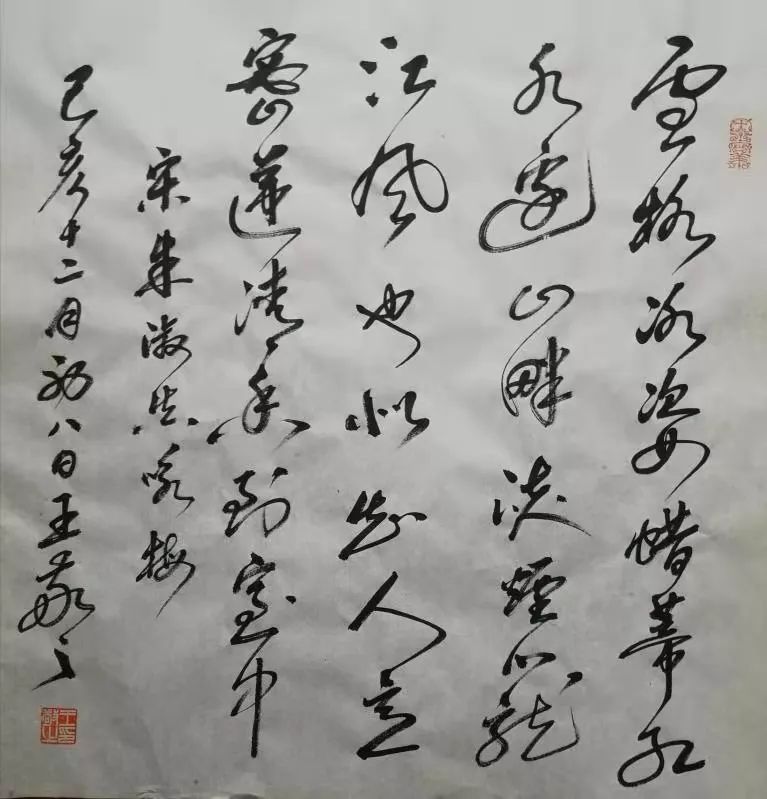 雪格冰姿蜡蒂红
水边山畔淡煙籠
江风也似知人意
密递清香到室中
宋朱淑真咏梅
己亥十二月初八日王敬之